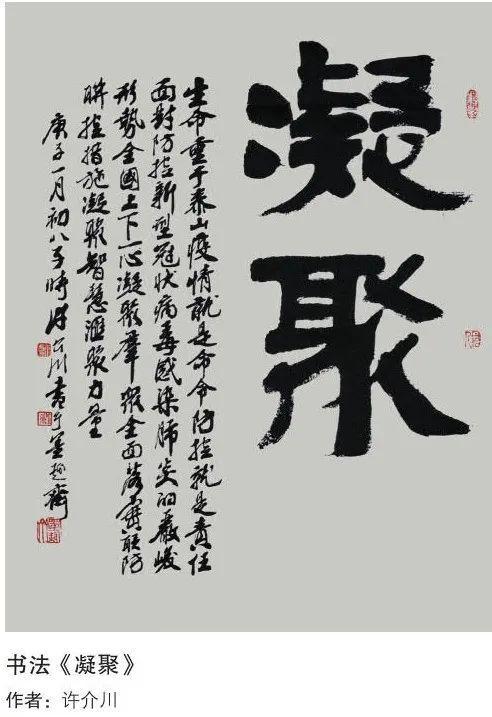 凝聚
生命重于泰山疫情就是命令防控就是责任
面對防控新型冠狀病毒感染肺炎的嚴峻
形勢全國上下一心凝聚羣衆全面落實联防
联控措施凝聚智慧匯聚力量
庚子一月初八子時許介川書于墨趣齋
书法《凝聚》
作者：许介川